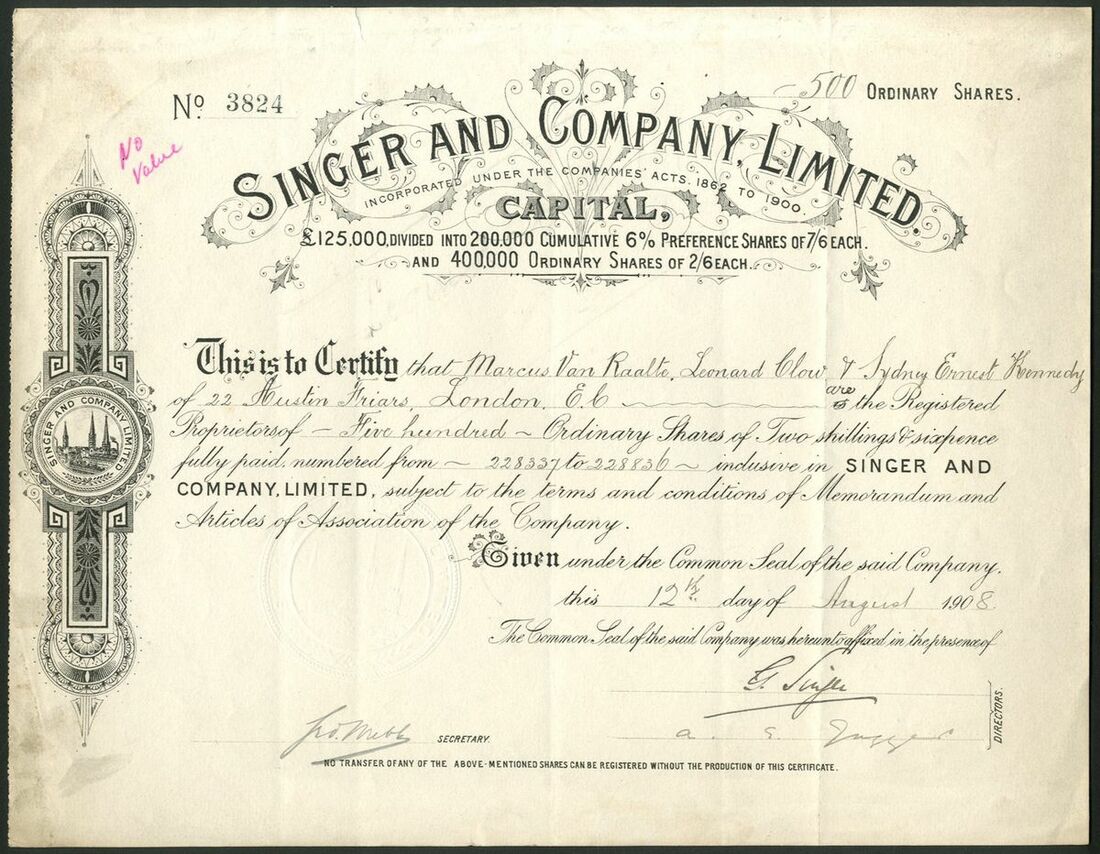 No. 3824
500 ORDINARY SHARES.
No
Value
SINGER AND COMPANY, LIMITED.
INCORPORATED UNDER THE COMPANIES' ACTS. 1862 TO 1900.
CAPITAL,
£125,000, DIVIDED INTO 200.000 CUMULATIVE 6% PREFERENCE SHARES OF 7/6 EACH.
AND 400,000 ORDINARY SHARES OF 2/6 EACH.
This is to Certify that Marcus Van Raalte, Leonard Clow & Sydney Ernest Kennedy
of 22 Austin Friars, London, E.C are the Registered
Proprietors of – Five hundred ~ Ordinary Shares of Two shillings & sixpence
fully paid, numbered from ~ 228337 to 228836 ~ inclusive in SINGER AND
COMPANY, LIMITED, subject to the terms and conditions of Memorandum and
Articles of Association of the Company.
Given under the Common Seal of the said Company,
this 12th. day of August 1908.
The Common Seal of the said Company was hereunto affixed in the presence of
G. Singer
DIRECTORS.
SECRETARY.
NO TRANSFER OF ANY OF THE ABOVE-MENTIONED SHARES CAN BE REGISTERED WITHOUT THE PRODUCTION OF THIS CERTIFICATE.
SINGER AND COMPANY LIMITED